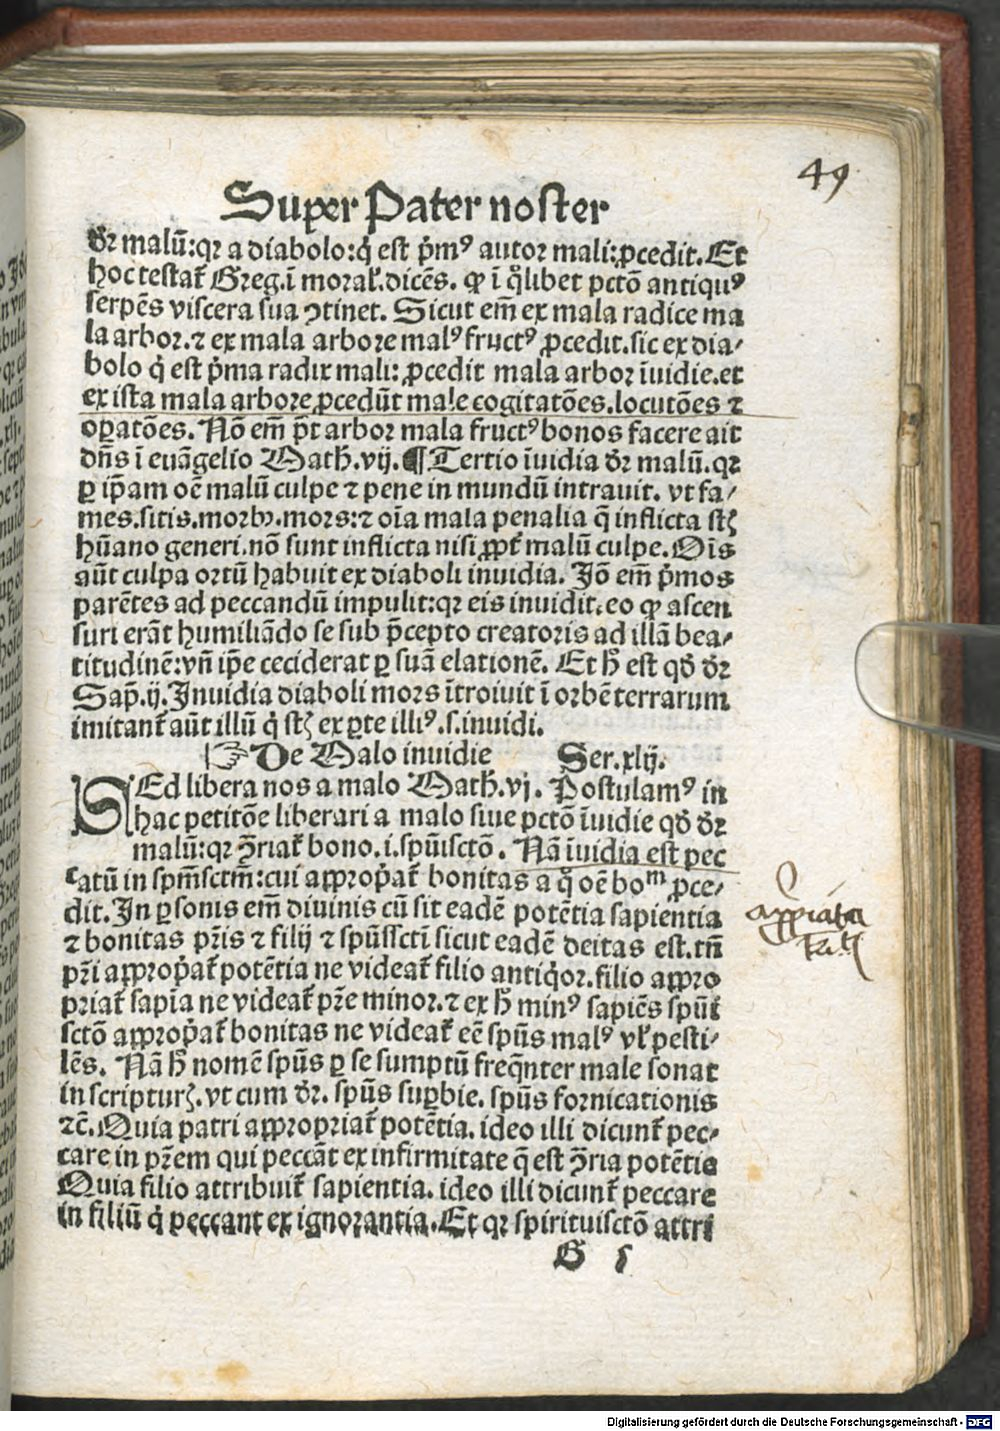 49
Super Pater noster
dr̄ malū:qꝛ a diabolo:q̇ est p̄mꝰ autoꝛ mali:ꝓcedit. Et
hoc testat̄ Greg.ī moꝛal̄.dicēs. ꝙ ī q̊libet pctō antiquꝰ
serpēs viscera sua ↄtinet. Sicut em̄ ex mala radice ma
la arboꝛ.⁊ ex mala arboꝛe malꝰ fructꝰ ꝓcedit.sic ex dia⸗
bolo q̇ est p̄ma radix mali: ꝓcedit mala arboꝛ īuidie.et
ex ista mala arboꝛe ꝓcedūt male cogitatōes.locutōes ⁊
oꝑatōes. Nō em̄ p̄t arboꝛ mala fructꝰ bonos facere ait
dn̄s ī euāgelio Math̄.vij. ¶ Tertio īuidia dr̄ malū.qꝛ
ꝑ ip̄am oē malū culpe ⁊ pene in mundū intrauit. vt fa⸗
mes.sitis.moꝛbꝰ.moꝛs:⁊ oīa mala penalia q̄ inflicta st̄
hūano generi.nō sunt inflicta nisi ꝓpt̄ malū culpe. Oīs
aūt culpa oꝛtū habuit ex diaboli inuidia. Jō em̄ p̄mos
parētes ad peccandū impulit:qꝛ eis inuidit.eo ꝙ ascen
suri erāt humiliādo se sub p̄cepto creatoꝛis ad illā bea⸗
titudinē:vn̄ ip̄e ceciderat ꝑ suā elationē. Et h̄ est qd̄ dr̄
Sap̄.ij. Inuidia diaboli moꝛs ītroiuit ī oꝛbē terrarum
imitant̄ aūt illū q̇ st̄ ex ꝑte illiꝰ.s.inuidi.
☞ De Malo inuidie Ser.xlij.
SEd libera nos a malo Math̄.vj. Postulamꝰ in
hac petitōe liberari a malo siue pctō īuidie qd̄ dr̄
malū:qꝛ ꝯ̄riat̄ bono.i.spūisctō. Nā īuidia est pec
catū in spm̄sctm̄:cui appꝛop̄at̄ bonitas a q̊ oē boᵐ ꝓce⸗
dit. In ꝑsonis em̄ diuinis cū sit eadē potētia sapientia
⁊ bonitas pr̄is ⁊ filij ⁊ spūssctī sicut eadē deitas est.tn̄
pr̄i appꝛop̄at̄ potētia ne videat̄ filio antiq̇oꝛ.filio appꝛo
pꝛiat̄ sapīa ne videat̄ pr̄e minoꝛ.⁊ ex h̄ minꝰ sapiēs spūi
sctō appꝛop̄at̄ bonitas ne videat̄ eē spūs malꝰ vl̄ pesti⸗
lēs. Nā h̄ nomē spūs ꝑ se sumptū freq̄nter male sonat
in scripturꝭ. vt cum dr̄. spūs suꝑbie. spūs foꝛnicationis
⁊c̄. Quia patri appꝛopꝛiat̄ potētia. ideo illi dicunt̄ pec⸗
care in pr̄em qui peccāt ex infirmitate q̄ est ꝯ̄ria potētie
Quia filio attribuit̄ sapientia. ideo illi dicunt̄ peccare
in filiū q̇ peccant ex ignoꝛantia. Et qꝛ spirituisctō attri
G s
Digitalisierung gefördert durch die Deutsche Forschungsgemeinschaft - DFG